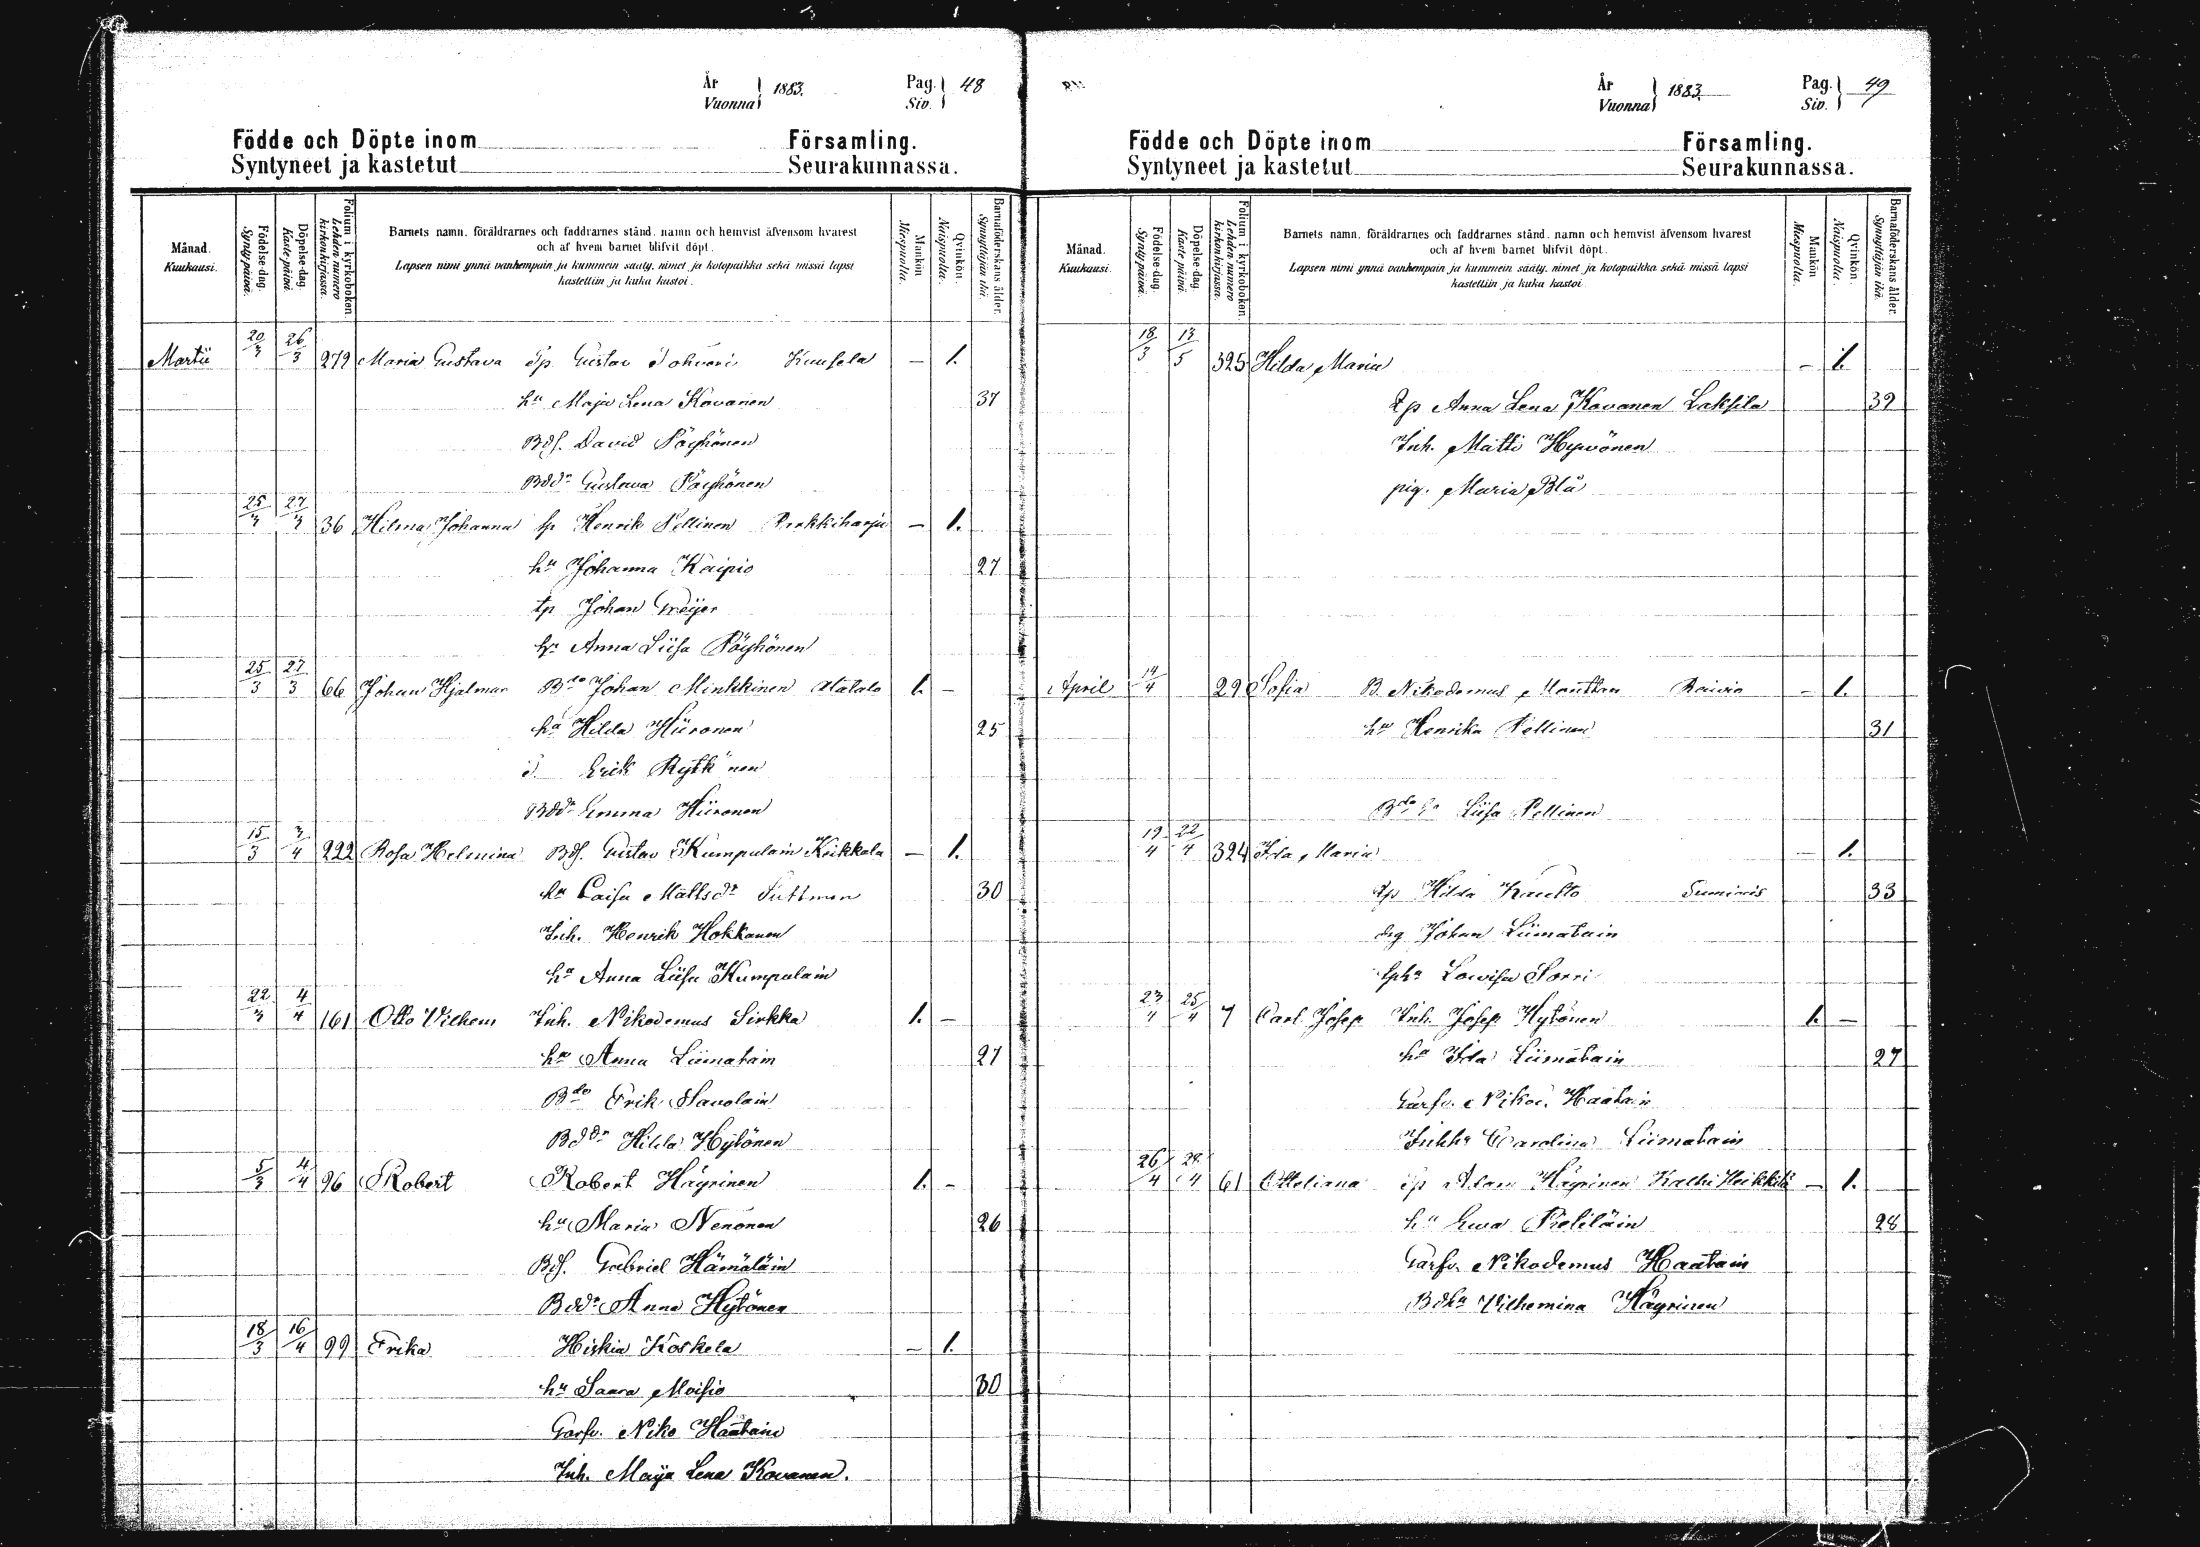 År
Vuonna 1883. Pag.
Siv. 48
Födde och Döpte inom Församling.
Syntyneet ja kastetut Seurakunnassa.
Månad.
Kuukausi.
Födelse-dag.
Synty päivä.
Döpelse-dag.
Kaste päivä.
Folium i kyrkoboken.
Lehden numero kirkonkirjassa.
Barnets namn, föräldrarnes och faddrarnes stånd, namn och hemvist äfvensom hvarest
och af hvem barnet blifvit döpt.
Lapsen nimi ynnä vanhempain ja kummein sääty, nimet ja kotopaikka sekä missä lapsi
kastettiin ja kuka kastoi.
Mankön.
Miespuolia.
Qvinkön.
Naispuolia.
Barnaföderskans ålder.
Synnyttäjän ikä.
Martii 20/3 26/3 272 Maria Gustava Gustav Kuusela — 1.
hu Maja Lena Kovanen 37
Bds. David Pöyhönen
Bddr Gustava Pöyhönen
25/3 27/3 36 Hilma Johanna Henrik Pellinen — 1.
hu Johanna Kaipio 27
tp Johan Greijer
hu Anna Liisa Pöyhönen
25/3 27/3 66 Johan Hjalmar Bdo Johan Minkkinen Matalo 1. —
hu Hilda Hiironen 25
Erik Rytkönen
Bddr Emma Hiironen
15/3 3/4 222 Rosa Helmina Bds. Gustav Kumpulain Keikkala — 1.
hu Caisa Mattsdr Puttonen 30
Inh. Henrik Hokkanen
hu Anna Liisa Kumpulain
22/3 4/4 161 Otto Vilhem Inh. Nikodemus Sirkka 1. —
hu Anna Liimatain 27
Bdo Erik Savolain
Bddr Hilda Hytönen
5/3 4/4 96 Robert Robert Häyrinen 1. —
hu Maria Nenonen 26
Bds. Gabriel Hämäläin
Bddr Anna Hytönen
18/3 16/4 99 Erika Hiskia Koskela — 1.
hu Saara Moisio 30
Garfv. Niko Haatain
Inh. Maija Lena Kovanen.
År
Vuonna 1883. Pag.
Siv. 49
Födde och Döpte inom Församling.
Syntyneet ja kastetut Seurakunnassa.
Månad.
Kuukausi.
Födelse-dag.
Synty päivä.
Döpelse-dag.
Kaste päivä.
Folium i kyrkoboken.
Lehden numero kirkonkirjassa.
Barnets namn, föräldrarnes och faddrarnes stånd, namn och hemvist äfvensom hvarest
och af hvem barnet blifvit döpt.
Lapsen nimi ynnä vanhempain ja kummein sääty, nimet ja kotopaikka sekä missä lapsi
kastettiin ja kuka kastoi.
Mankön.
Miespuolia.
Qvinkön.
Naispuolia.
Barnaföderskans ålder.
Synnyttäjän ikä.
18/3 13/5 325 Hilda Maria — 1.
Anna Lena Kovanen Laksila 39
Inh. Matti Hyvönen
pig. Maria Blå
April 14/4 290 Sofia B. Nikodemus Manttan Raivio — 1.
hu Henrika Pellinen 31
Liisa Pellinen
19/4 22/4 324 Ida Maria — 1.
Hilda Kaukto 33
drg Johan Liimatain
Lovisa Sorri
23/4 25/4 7 Carl Josep Inh. Josep Hytönen 1. —
hu Ida Liimatain 27
Garfv. Nikod. Haatain
Inhhu Carolina Liimatain
26/4 28/4 61 Otteliana Adam Häyrinen — 1.
hu Ewa Pieliläin 28
Garfv. Nikodemus Haatain
Bdhu Vilhemina Häyrinen